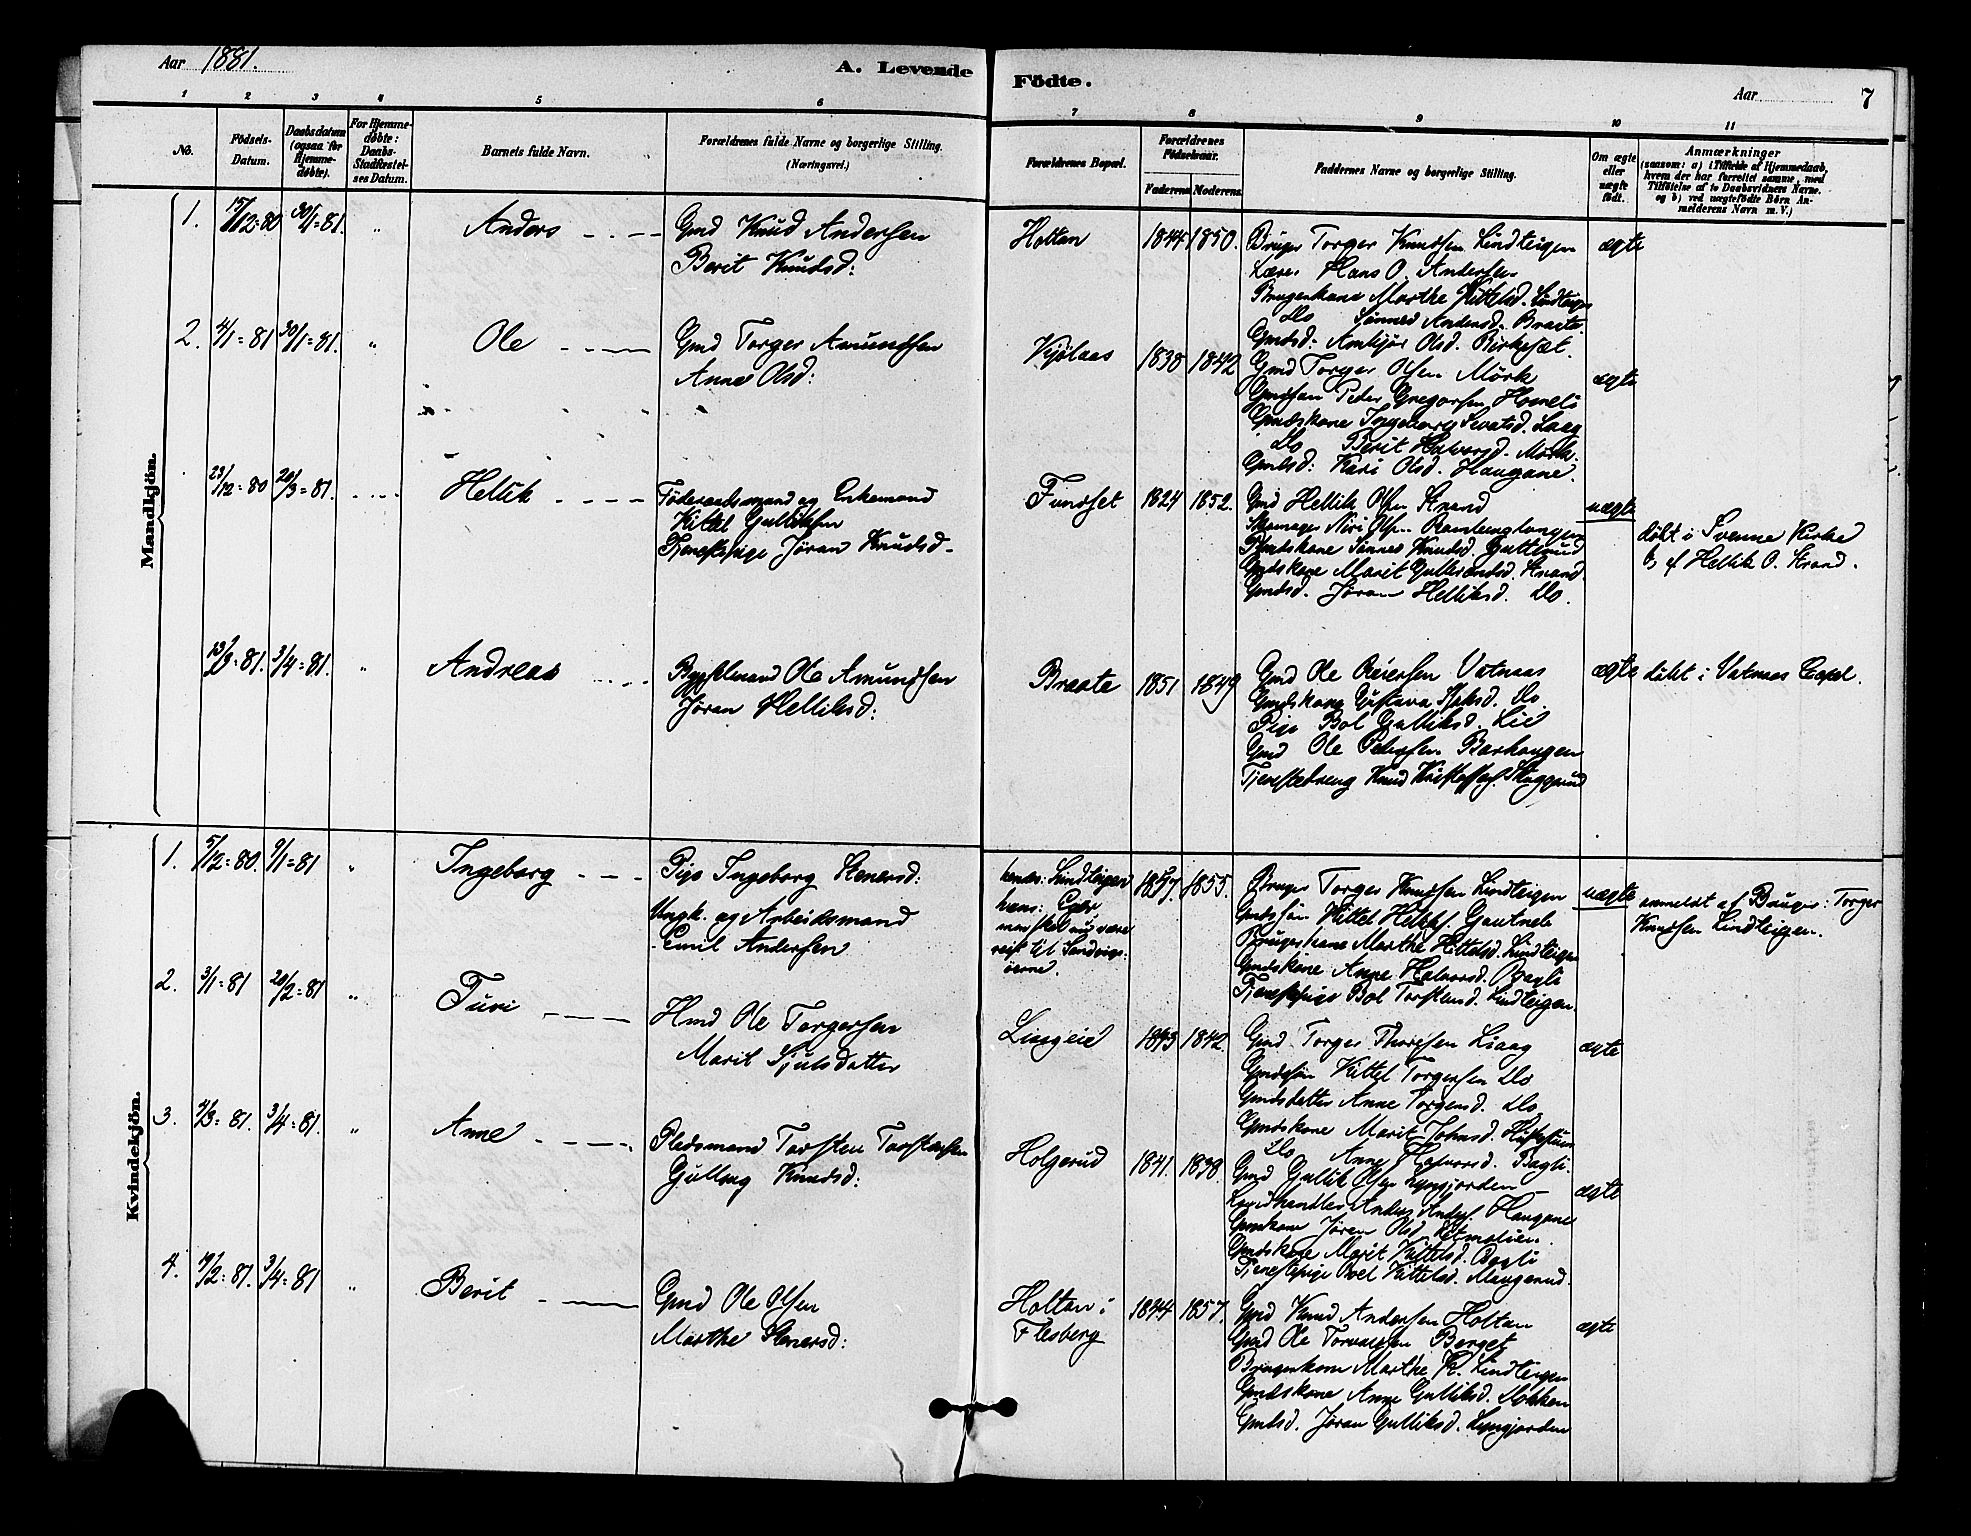 Aar 1881.
A. Levende
Födte.
Aar
7
1 2 3 4 5 6
7 8 9 10 11
No.
Födsels-Datum.
Daabsdatum (ogsaa for Hjemmedøbte).
For Hjemmedøbte: Daabs-Stadfæstelses Datum.
Barnets fulde Navn.
Forældrenes fulde Navne og borgerlige Stilling. (Næringsvei.)
Forældrenes Bopæl.
Forældrenes Födselsaar.
Faderens. Moderens.
Faddernes Navne og borgerlige Stilling.
Om ægte eller uægte födt.
Anmærkninger
(saasom: a) i Tilfælde af Hjemmedaab, hvem der har forrettet samme, med Tilföielse af to Daabsvidners Navne. og b) ved uægtefödte Börn Anmelderens Navn m. V.)
Mandkjön.
1. 15/12=80 30/1=81. " Anders
Gmd Knud Andersen
Berit Knudsd:
Holtan 1844 1850.
Bruger Torger Knudsen Lindteigen
Lærer Hans O. Andersen
Brugerkone Marthe Kittelsd. Lindteigen
Do Sönnev Andersd. Braate.
Gmdsd: Ambjør Olsd. Birkesæt.
ægte
2. 4/1=81 30/1=81. " Ole
Gmd Torger Amundsen
Anne Olsd:
Kjölaas 1838 1842
Gmd Torger Olsen Mörk
Gmdsøn Peder Gregorsen
Gmdskone Sevatsd. Laag
Do Berit Halvorsd. Mörk.
Gmdsd: Kari Olsd. Haugane.
ægte
23/12=80 20/3=81. Hellik
Föderaadsmand og Enkemand
Kittel Gulliksen
Tjenestepige Jöran Knudsd.
Fundset 1824 1852.
Gmd Hellik Olsen Strand
Gmdskone Sönnev Knudsd.
Gmdskone Marit Strand
Gmdsd. Jöran Helliksd. Do.
uægte
döbt i Svenne Kirke
b, af Hellik O. Strand.
13/3=81. 3/4=81. " Andreas
Bygselmand Ole Amundsen
Jöran Helliksd:
Braate 1851 1849
Gmd Ole Reiersen Vatnaas
Gmdskone Gustava Do
Pige Bol Gulliksd. Lie
Gmd Ole Pedersen Barhaugen
Tjenestedreng Knud
ægte
döbt i Vatnaas Capel.
Kvindekjön.
1. 5/12=80. 9/1=81 " Ingeborg
Pige Ingeborg Stenersd:
Ungk. og Arbeidsmand
Emil Andersen
hendes: Lindteigen
hans:
1857. 1855.
Bruger Torger Knudsen Lindteigen
Gmdssön Kittel Gautneb
Brugerkone Marthe Kittelsd. Lindteigen
Gmdskone Anne Halvorsd. Bagli
Tjenestepige Bol Torstensd. Lindteigen.
uægte
anmeldt af Bruger: Torger
Knudsen Lindteigen.
2. 3/1=81 20/2=81 " Turi
Hmd Ole Torgersen
Marit Sjulsdatter
Liaageie 1843 1842.
Gmd Torger Thoresen Liaag
Gmdssön Kittel Torgersen Do
Gmdsdatter Anne Torgersd. Do
Gmdskone Marit Johnsd.
Do Anne Halvorsd. Bagli.
ægte
3. 4/3=81. 3/4=81. " Anne
Pladsmand Torsten Torstensen
Gullaug Knudsd:
Holgerud 1841. 1838.
Gmd Gullik Olsen Lyngjorden
Landhandler Anders Anders. Haugane
Gmdskone Jöran Olsd.
Gmdskone Marit Kittelsd. Bagli
Tjenestepige Kittelsd. Maugerud.
ægte
4. 19/2=81. 3/4=81 " Berit
Gmd Ole Olsen
Marthe Stenersd:
Holtan i
Flesberg
1844 1857.
Gmd Knud Andersen Holtan
Gmd Ole Torvaldsen Berget
Brugerkone Marthe K. Lindteigen
Gmdskone Anne Gulliksd. Dokken
Gmdsd. Jöran Gulliksd. Lyngjorden
ægte